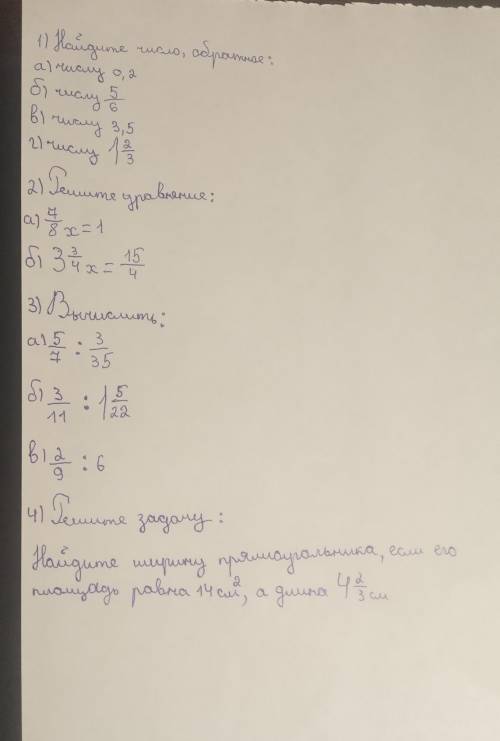 1) Найдите число, обратное:
а) числу 0,2
б) числу 5/6
в) числу 3,5
г) числу 1 2/3
2) Решите уравнение:
а) 7/8 x = 1
б) 3 3/4 x = 15/4
3) Вычислить:
а) 5/7 : 3/35
б) 3/11 : 1 5/22
в) 2/9 : 6
4) Решите задачу:
Найдите ширину прямоугольника, если его
площадь равна 14 см², а длина 4 2/3 см